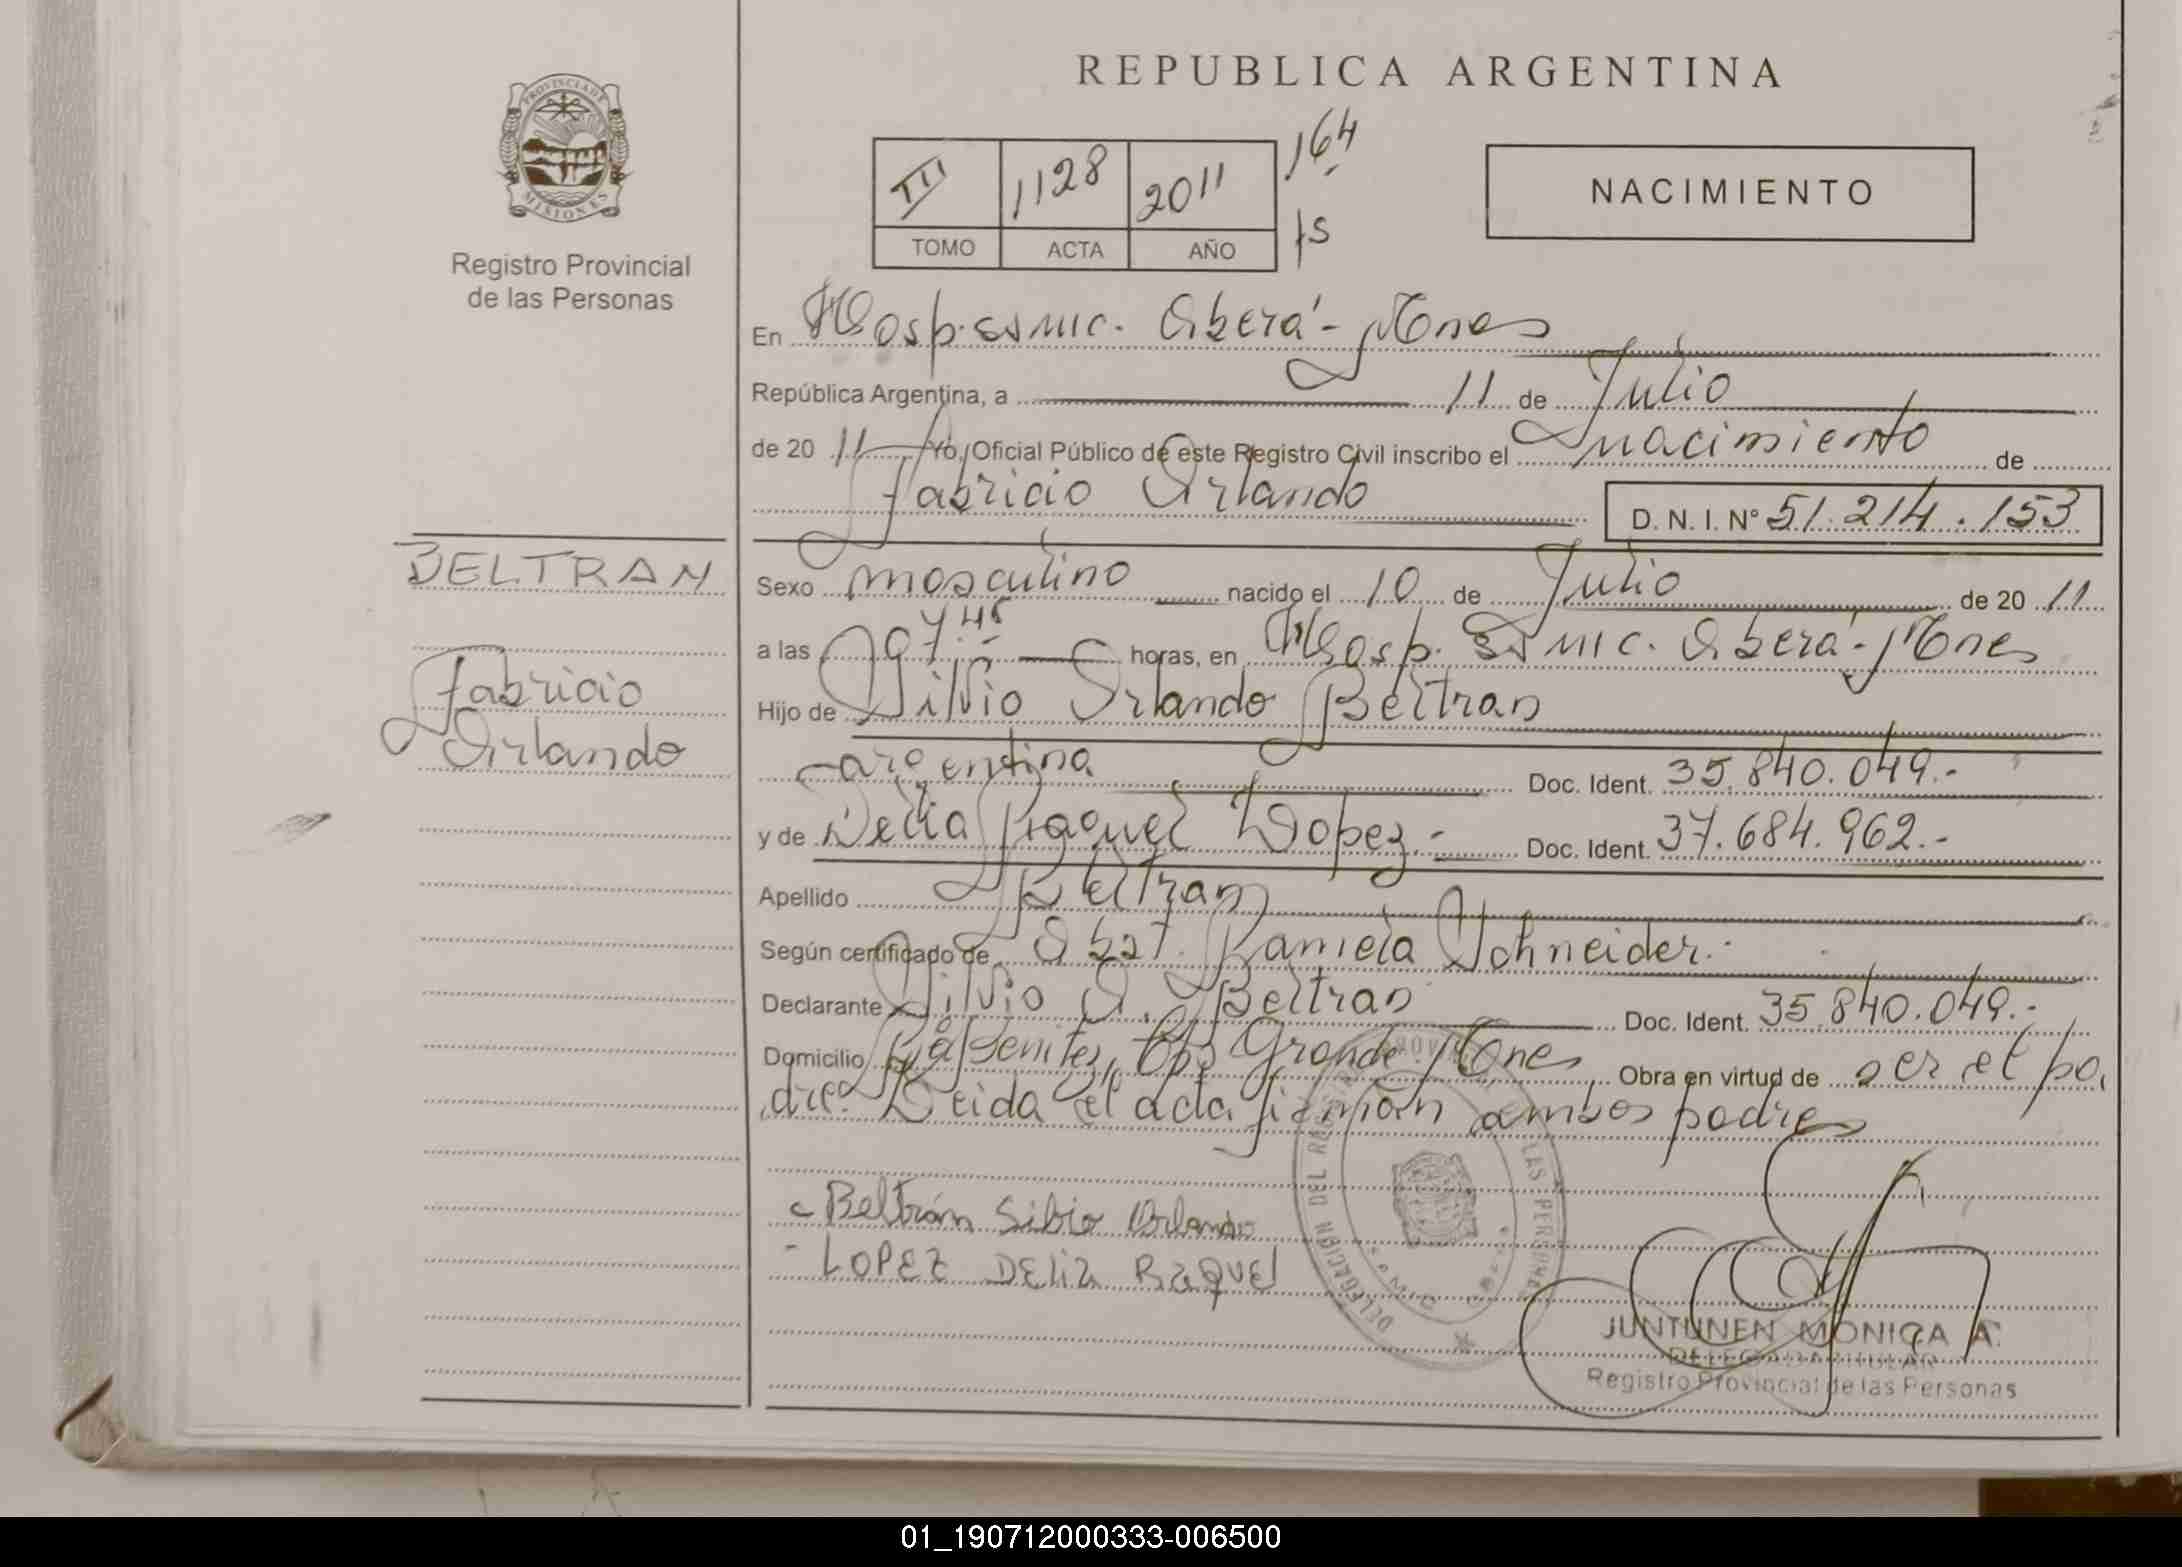 REPUBLICA ARGENTINA
PROVINCIA DE
MISIONES
Registro Provincial
de las Personas
III 1128 2011 164
TOMO ACTA AÑO
NACIMIENTO
En Hosp. SSMIC. Oberá - Mnes
República Argentina, a 11 de Julio
de 20 11 Yo, Oficial Público de este Registro Civil inscribo el nacimiento de
Fabricio Orlando D. N. I. Nº 51.214.153
BELTRAN
Fabricio
Orlando
Sexo masculino nacido el 10 de Julio de 20 11
a las 07.45 horas, en Hosp. SSMIC. Oberá - Mnes
Hijo de Silvio Orlando Beltran
argentina Doc. Ident. 35.840.049.-
y de Delia Raquel Lopez.- Doc. Ident. 37.684.962.-
Apellido Beltran
Según certificado de Obst. Pamela Schneider.
Declarante Silvio O. Beltran Doc. Ident. 35.840.049.-
Domicilio Benitez, Cpo Grande Mnes Obra en virtud de ser el pa
dre. Leida el acta firman ambos padres
- Beltrán Silvio Orlando
- LOPEZ DELia RaQUEl
DELEGACION DEL LAS PERSONAS
JUNTUNEN MONICA A.
Registro Provincial de las Personas
01_190712000333-006500